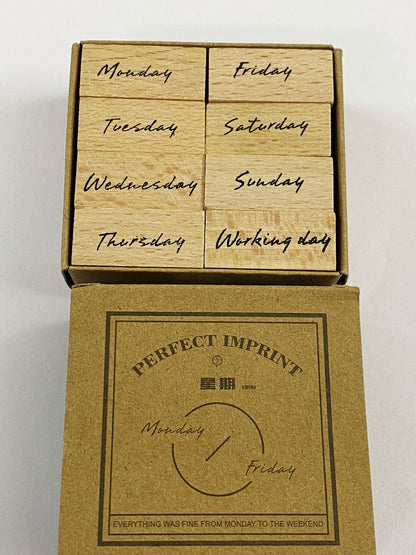 Monday
Friday
Tuesday
Saturday
Wednesday
Sunday
Thursday
Working day
PERFECT IMPRINT
星期
Monday
Friday
EVERYTHING WAS FINE FROM MONDAY TO THE WEEKEND